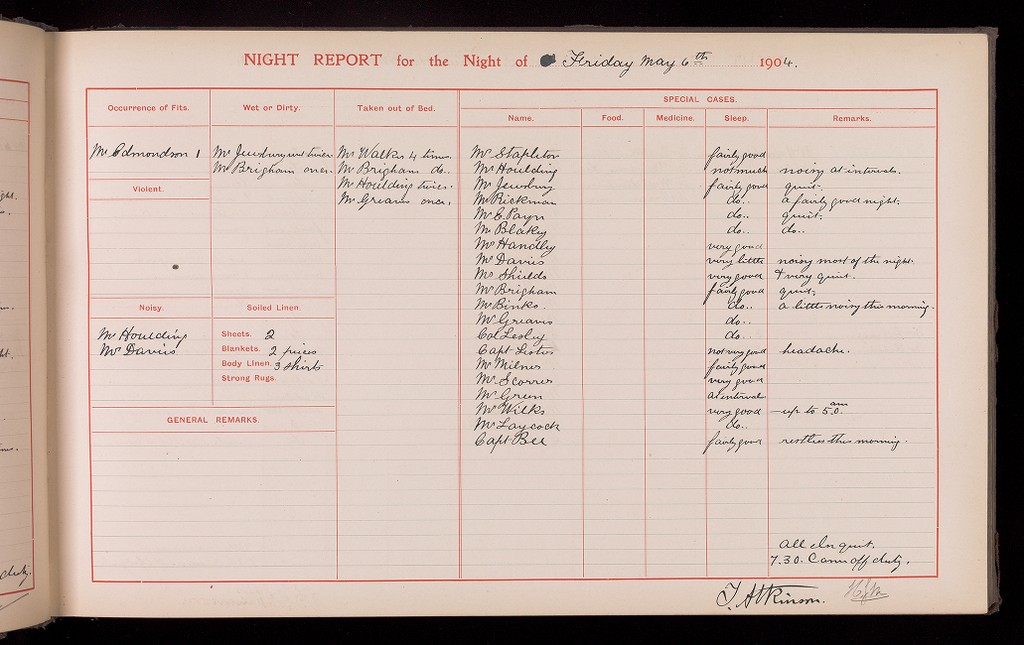 NIGHT REPORT for the Night of Friday May 6th 1904.
Occurrence of Fits.
Mr Edmondson 1
Violent.
Noisy.
Mr Houlding
Mr Davies
Wet or Dirty.
Mr Jewsbury wet twice
Mr Brigham once.
Soiled Linen.
Sheets. 2
Blankets. 2 pieces
Body Linen. 3 shirts
Strong Rugs.
GENERAL REMARKS.
Taken out of Bed.
Mr Walker 4 times.
Mr Brigham do..
Mr Houlding twice.
Mr Greaves once.
SPECIAL CASES.
Name. Food. Medicine. Sleep. Remarks.
Mr Stapleton fairly good
Mr Houlding not much noisy at intervals.
Mr Jewsbury fairly good quiet.
Mr Rickman do.. a fairly good night.
Mr E. Payn do.. quiet.
Mr Blakey do.. do..
Mr Handley very good
Mr Davies very little noisy most of the night.
Mr Shields very good & very quiet.
Mr Brigham fairly good quiet.
Mr Binks. do.. a little noisy this morning.
Mr Greaves do..
Col Lesley do.
Capt Lister not very good headache.
Mr Milnes fairly good
Mr Scorrer very good
Mr Green at intervals
Mr Wilks very good up to 5.0. am
Mr Laycock do..
Capt Bell fairly good restless this morning.
All quiet.
7.30. Came off duty.
T. Atkinson.
duty.